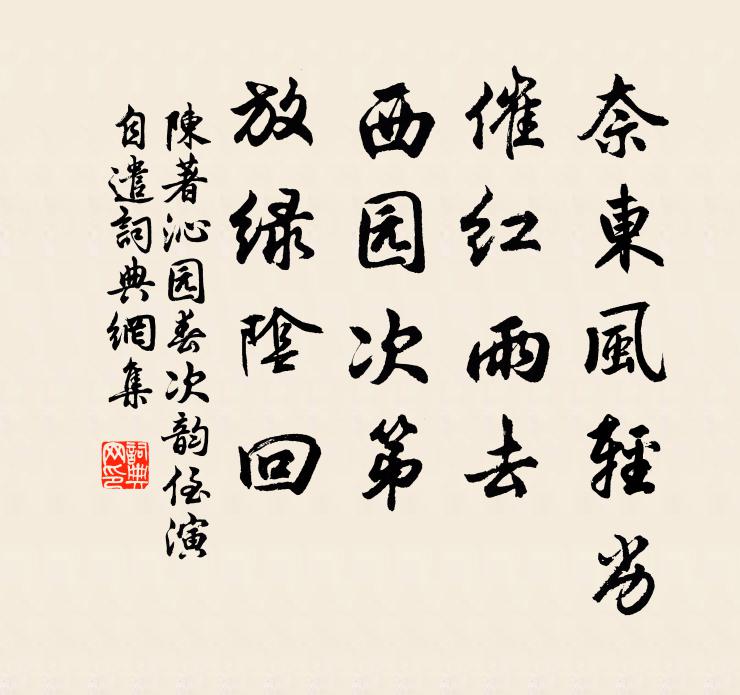 奈東風輕劣
催红雨去
西园次第
放绿陰回
陳著沁园春次韵侄演
自遣詞典網集
詞典
网印